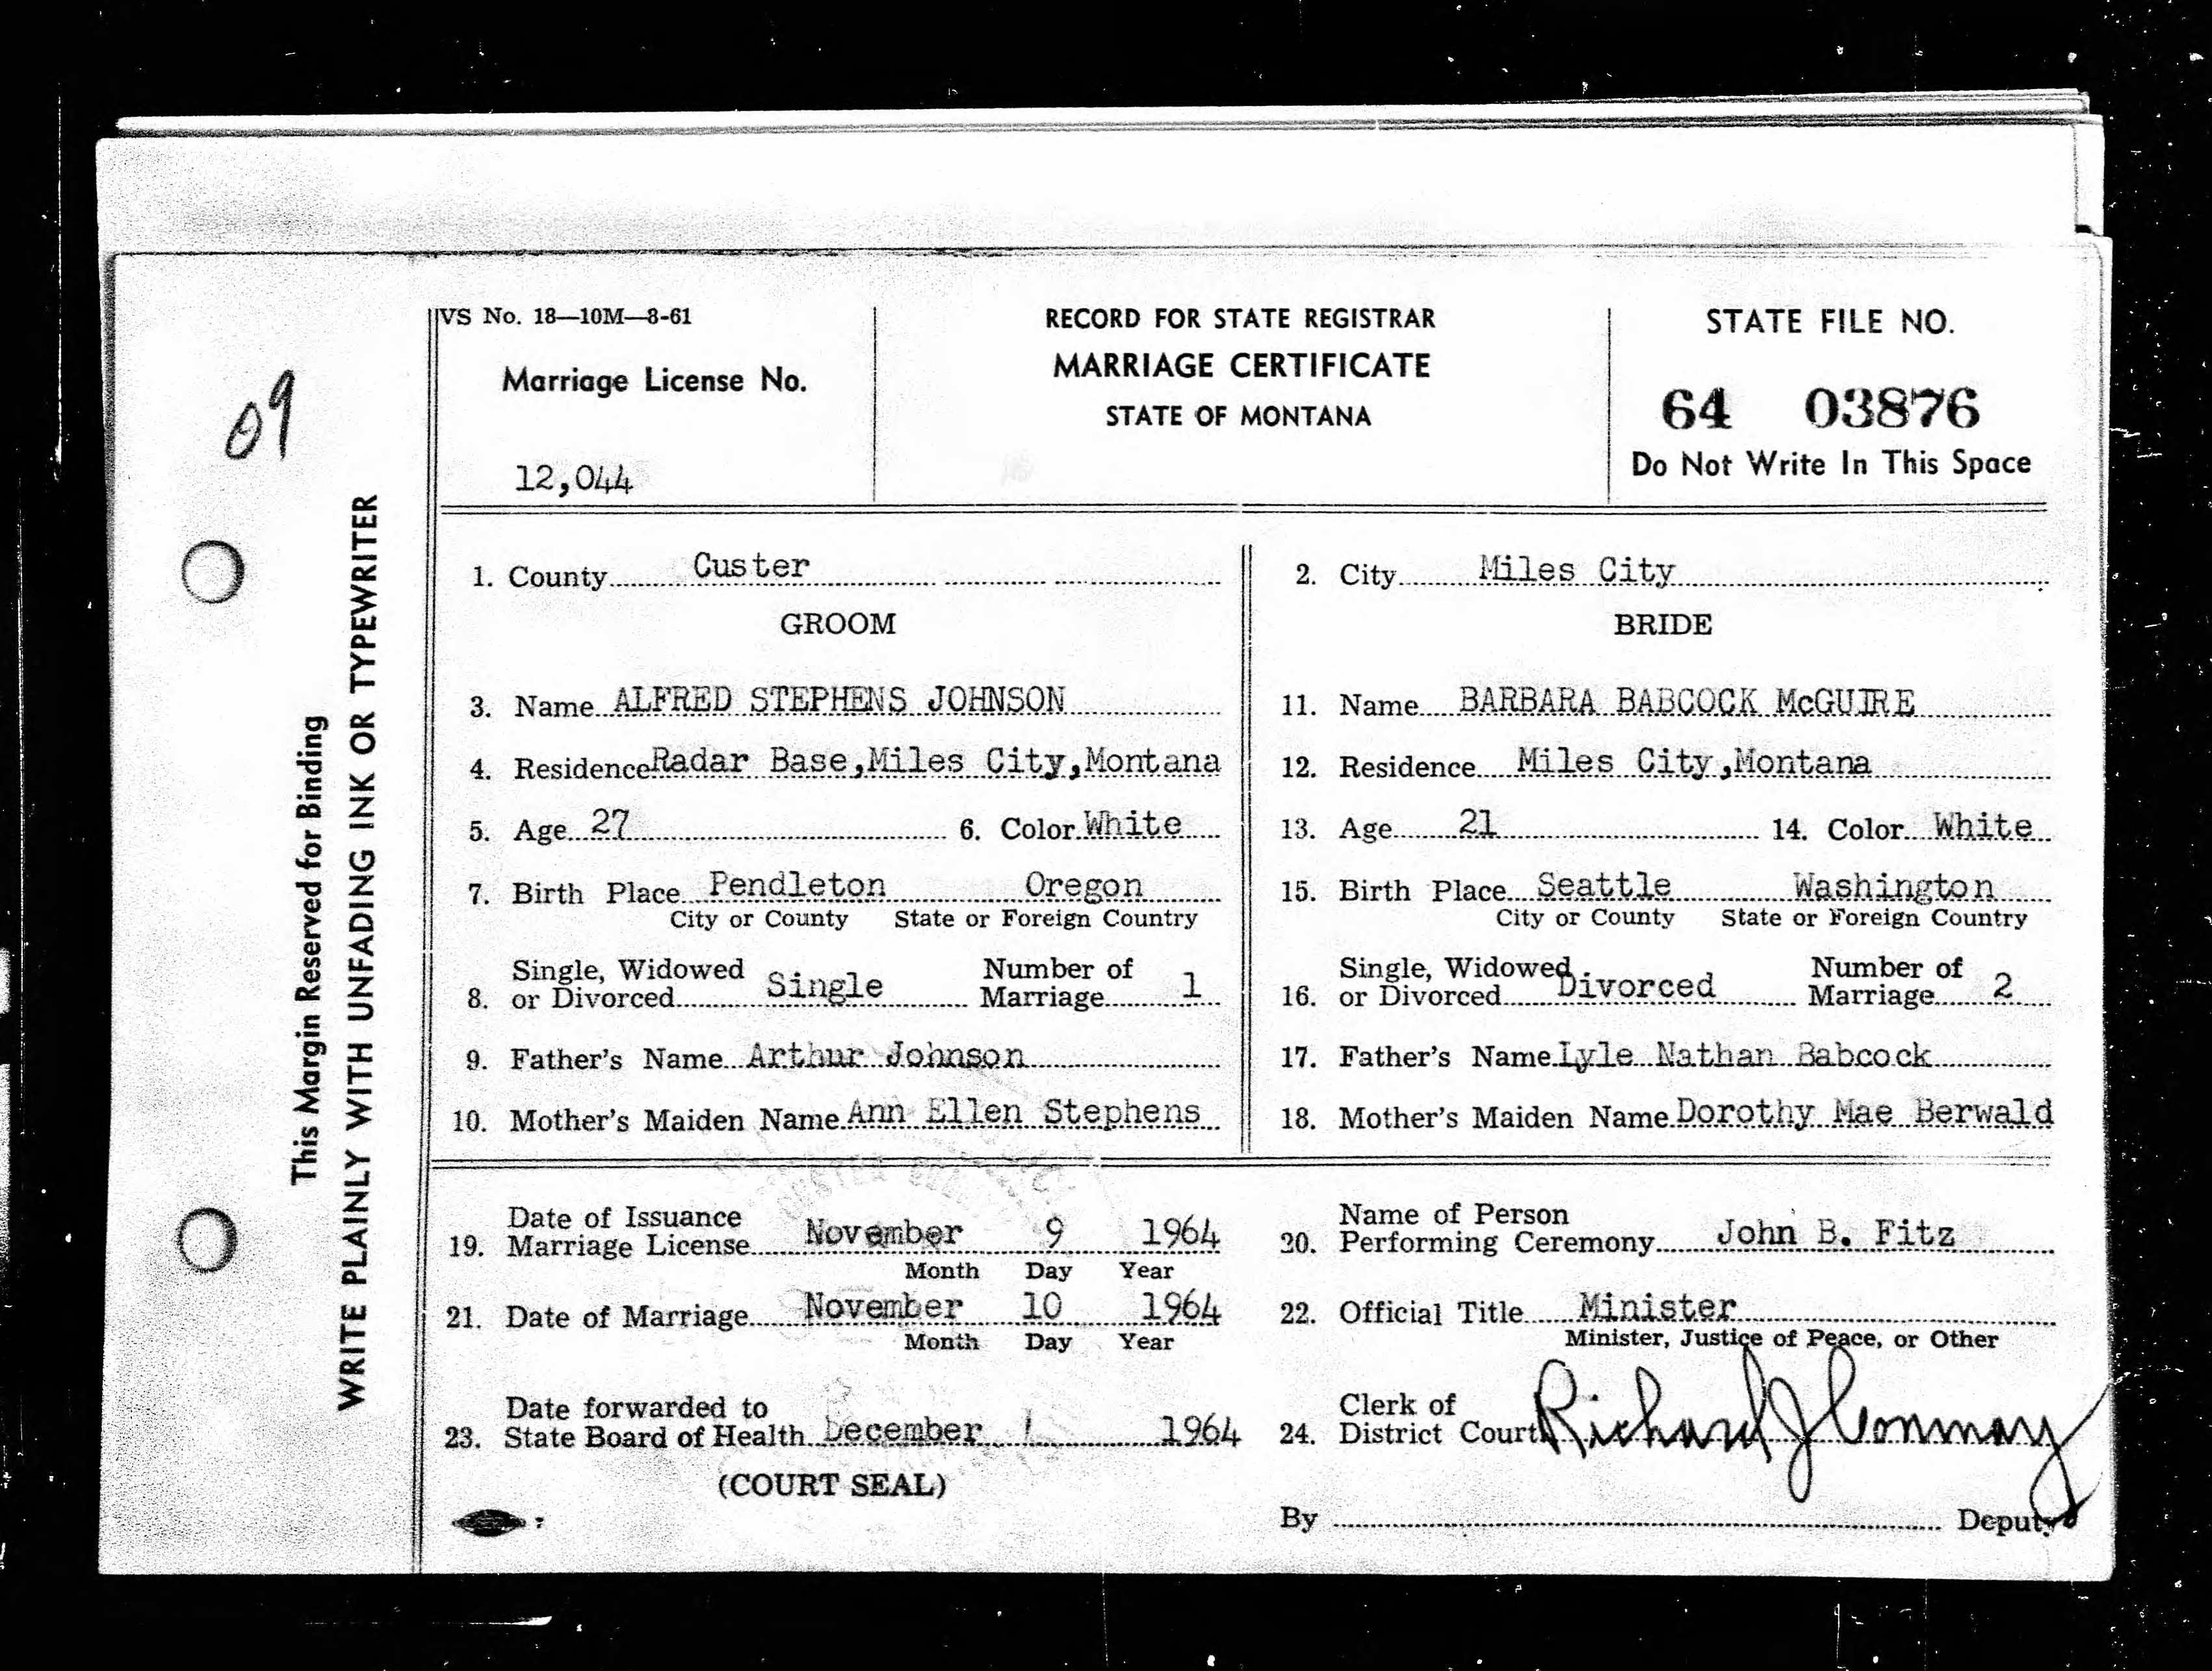 VS No. 18—10M—8-61
Marriage License No.
12,044
RECORD FOR STATE REGISTRAR
MARRIAGE CERTIFICATE
STATE OF MONTANA
STATE FILE NO.
64 03876
Do Not Write In This Space
09
This Margin Reserved for Binding
WRITE PLAINLY WITH UNFADING INK OR TYPEWRITER
1. County Custer
2. City Miles City
GROOM
3. Name ALFRED STEPHENS JOHNSON
4. Residence Radar Base,Miles City,Montana
5. Age 27 6. Color White
7. Birth Place Pendleton Oregon
City or County State or Foreign Country
Single, Widowed Number of
8. or Divorced Single Marriage 1
9. Father's Name Arthur Johnson
10. Mother's Maiden Name Ann Ellen Stephens
BRIDE
11. Name BARBARA BABCOCK McGUIRE
12. Residence Miles City,Montana
13. Age 21 14. Color White
15. Birth Place Seattle Washington
City or County State or Foreign Country
Single, Widowed Number of
16. or Divorced Divorced Marriage 2
17. Father's Name Lyle Nathan Babcock
18. Mother's Maiden Name Dorothy Mae Berwald
Date of Issuance
19. Marriage License November 9 1964
Month Day Year
Name of Person
20. Performing Ceremony John B. Fitz
21. Date of Marriage November 10 1964
Month Day Year
22. Official Title Minister
Minister, Justice of Peace, or Other
Date forwarded to
23. State Board of Health December 1 1964
(COURT SEAL)
Clerk of
24. District Court Richard J Conmay
By Deputy